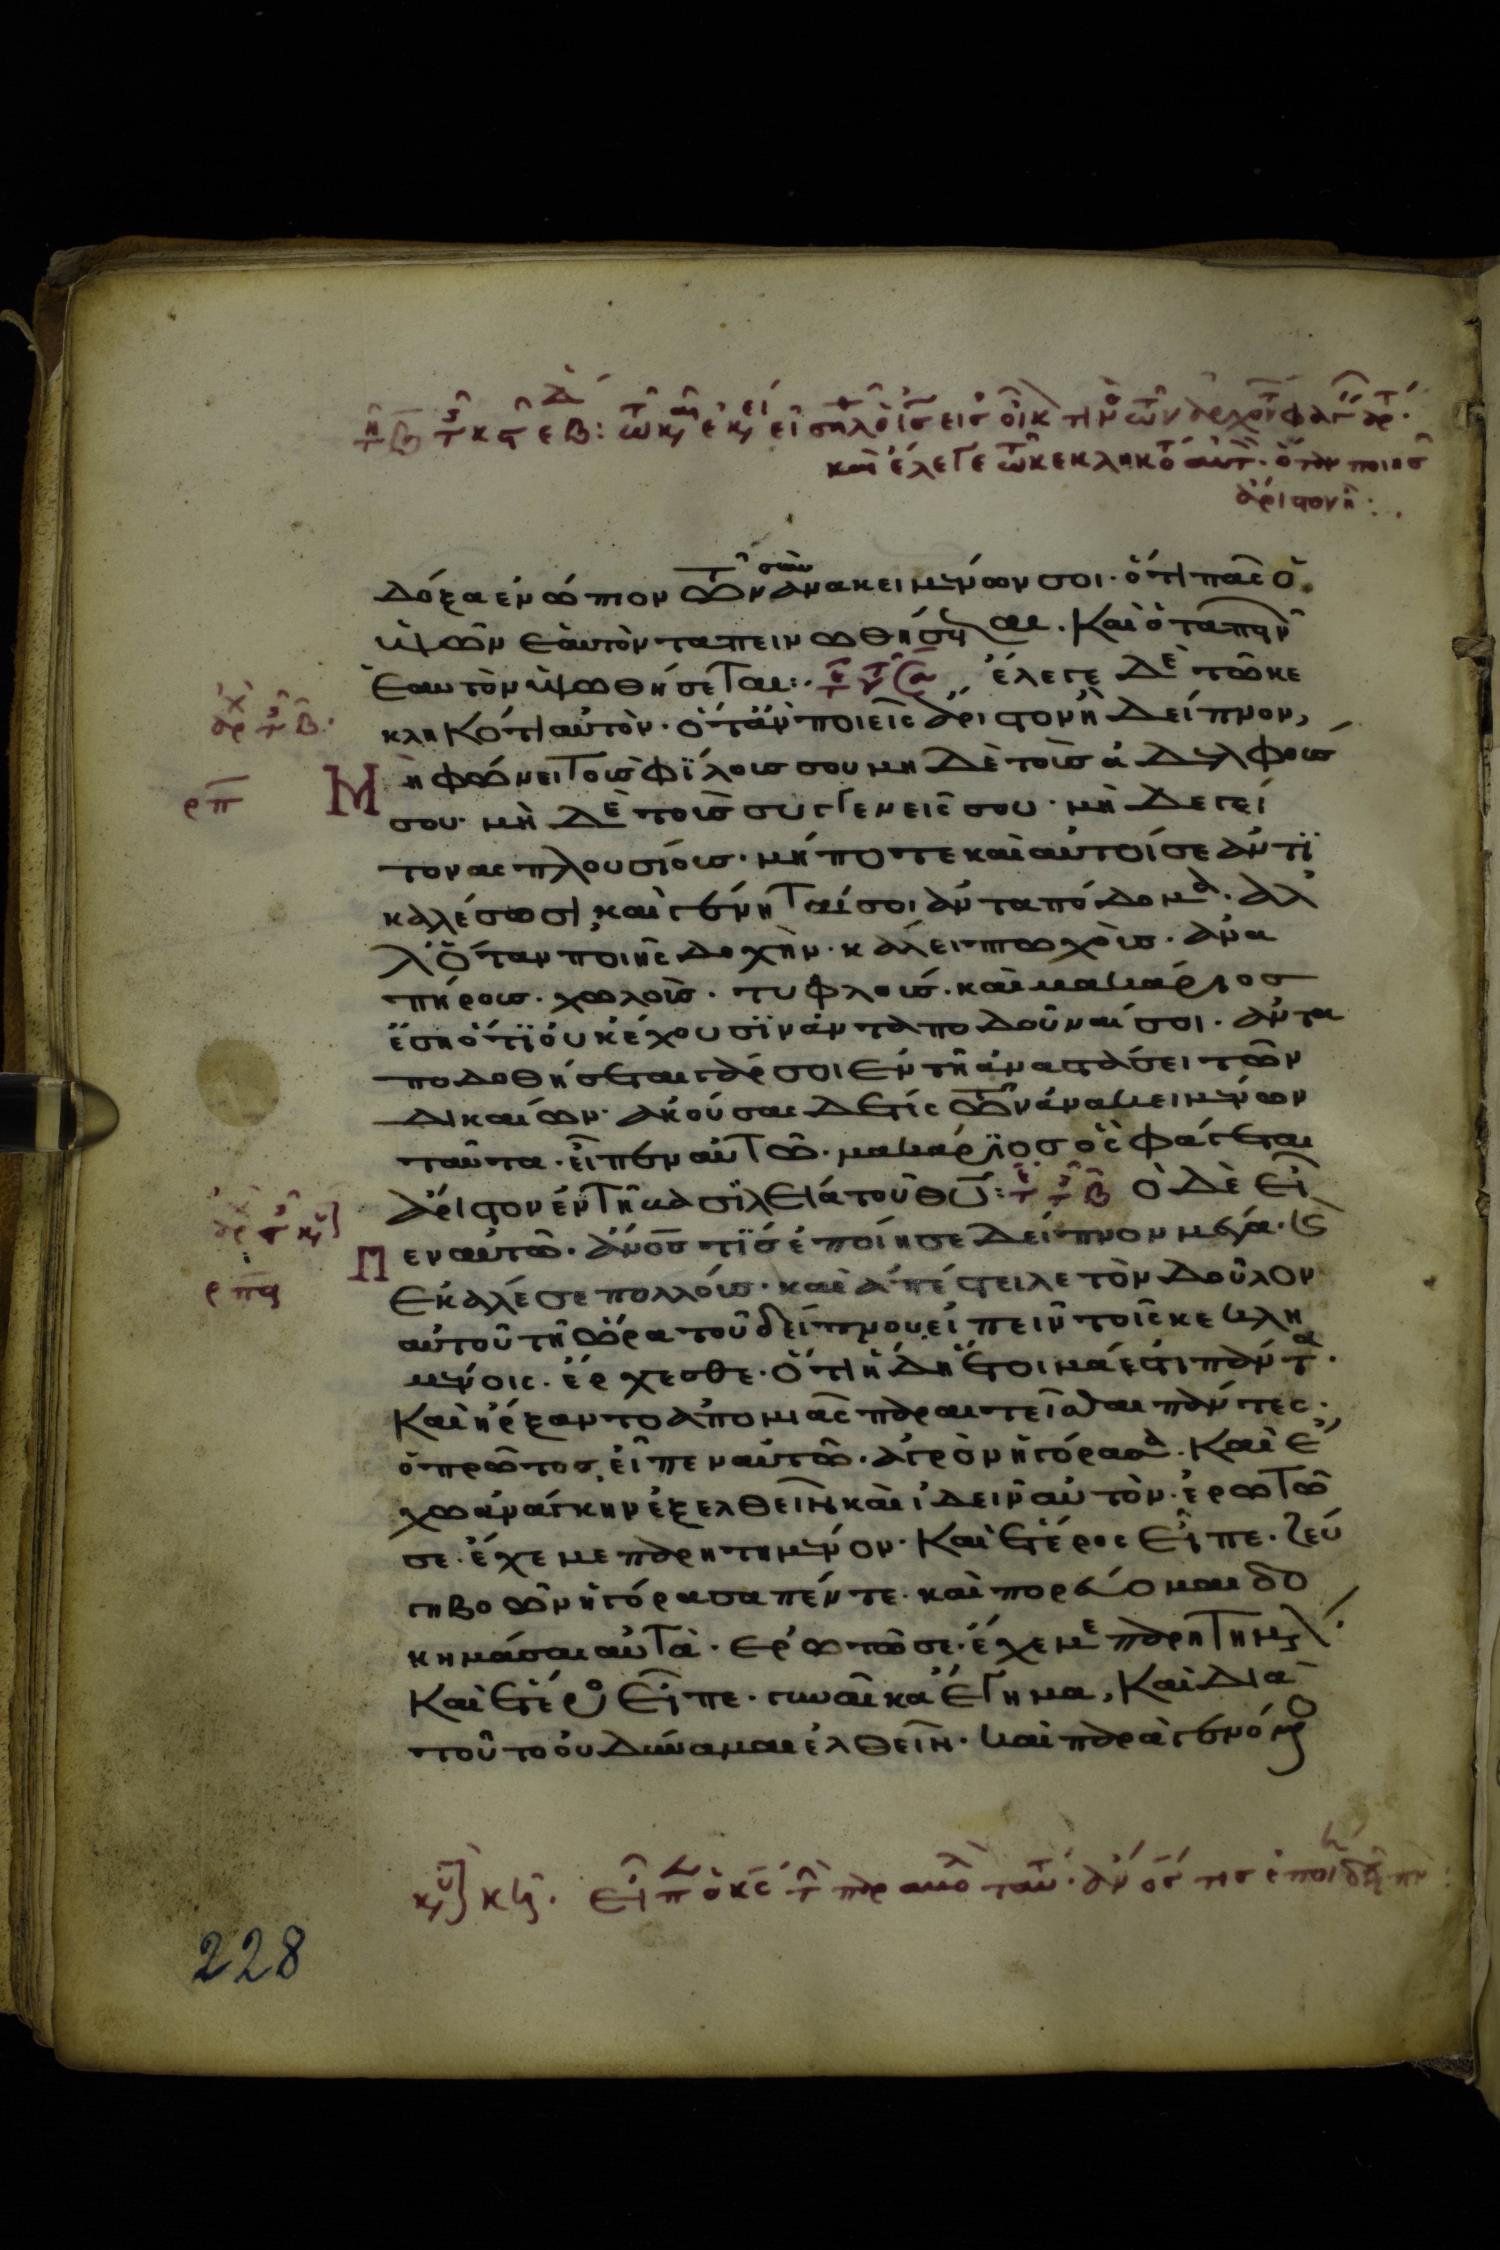 καὶ ἔλεγε τῶ κεκληκότ αὐτ. ὅταν ποιησ
ἄριστον ἢ:
δόξα ἐνώπιον τῶν συνανακειμένων σοι. ὅτι πᾶς ὁ
ὑψῶν ἑαυτὸν ταπεινωθήσεται. Καὶ ὁ ταπεινῶν
ἑαυτὸν ὑψωθήσεται: ἔλεγε δὲ τῶ κε
κληκότι αὐτὸν. ὅταν ποιεῖς ἄριστον ἢ δεῖπνον,
Μὴ φώνει τοὺς φίλους σου μη δὲ τοὺς ἀδελφούς
ρπ
σου. μὴ δὲ τοὺς συγγενεῖς σου. μὴ δὲ γεί
τονας πλουσίους. μήποτε καὶ αὐτοί σε ἀντι
καλέσωσι, καὶ γένηταί σοι ἀνταπόδομα. ἀλ
λ' ὅταν ποιῆς δοχὴν. κάλει πτωχοὺς. ἀνα
πήρους. χωλοὺς. τυφλούς. καὶ μακάριος
ἔση ὅτι οὐκ ἔχουσιν ἀνταποδοῦναί σοι. ἀντα
ποδοθήσεται γάρ σοι ἐν τῆ ἀναστάσει τῶν
δικαίων. ἀκούσας δέ τις τῶν ἀνακειμένων
ταῦτα. εἶπεν αὐτῶ. μακάριος ὃς φάγεται
ἄριστον ἐν τῆ βασιλεία τοῦ θυ: Ὁ δὲ εἶ
Πεν αὐτῶ. ἄνος τίς ἐποίησε δεῖπνον μέγα. καὶ
ρπα
ἐκάλεσε πολλούς. καὶ ἀπέστειλε τὸν δοῦλον
αὐτοῦ τῆ ὥρα τοῦ δείπνου εἰπεῖν τοῖς κεκλη
μένοις. ἔρχεσθε. ὅτι ἤδη ἕτοιμά ἐστι πάντα.
Καὶ ἤρξαντο ἀπὸ μιᾶς παραιτεῖσθαι πάντες.
ὁ πρῶτος εἶπεν αὐτῶ. ἀγρὸν ἠγόρασα. Καὶ ἔ
χω ἀνάγκην ἐξελθεῖν καὶ ἰδεῖν αὐτὸν. ἐρωτῶ
σε. ἔχε με παρητημένον. Καὶ ἕτερος εἶπε. ζεύ
γη βοῶν ἠγόρασα πέντε. καὶ πορεύομαι δο
κημάσαι αὐτὰ. ἐρωτῶ σε. ἔχε με παρητημέν.
Καὶ ἕτερος εἶπε. γυναῖκα ἔγημα, Καὶ διὰ
τοῦτο οὐ δύναμαι ἐλθεῖν. καὶ παραγενόμ
εἶπ ὁ κς τ παραβολ ταύτ. ἄνος τις ἐποί δεῖπν:
228